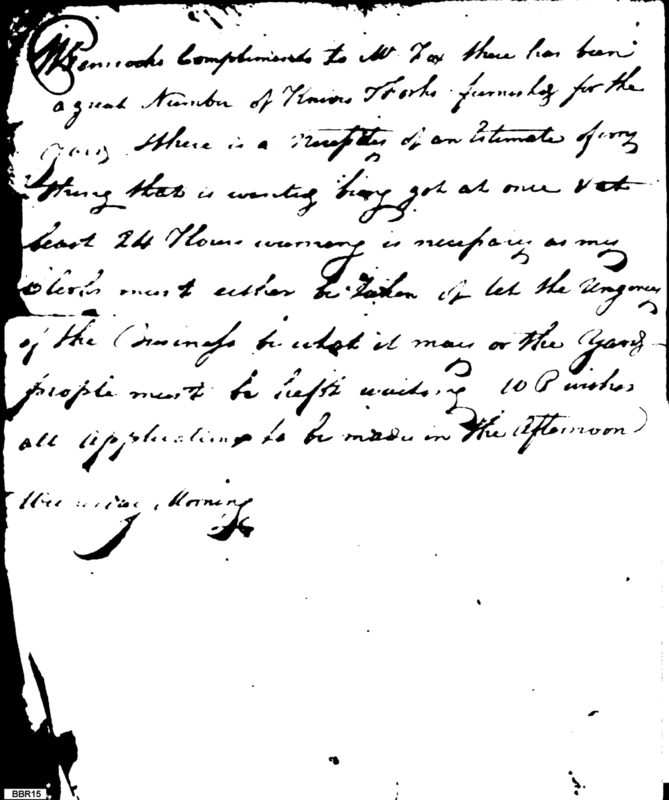 Compliments to Mr Fox there has been
a great Number of Knives & Forks furnished for the
Yard there is a necessity of an Estimate of every
thing that is wanted being got at once & at
least 24 Hours warning is necessary as my
Clerks must either be taken of let the Urgency
of the Business be what it may or the Yard
people must be left waiting W P wishes
all Applications to be made in the Afternoon
Morning
BBR15